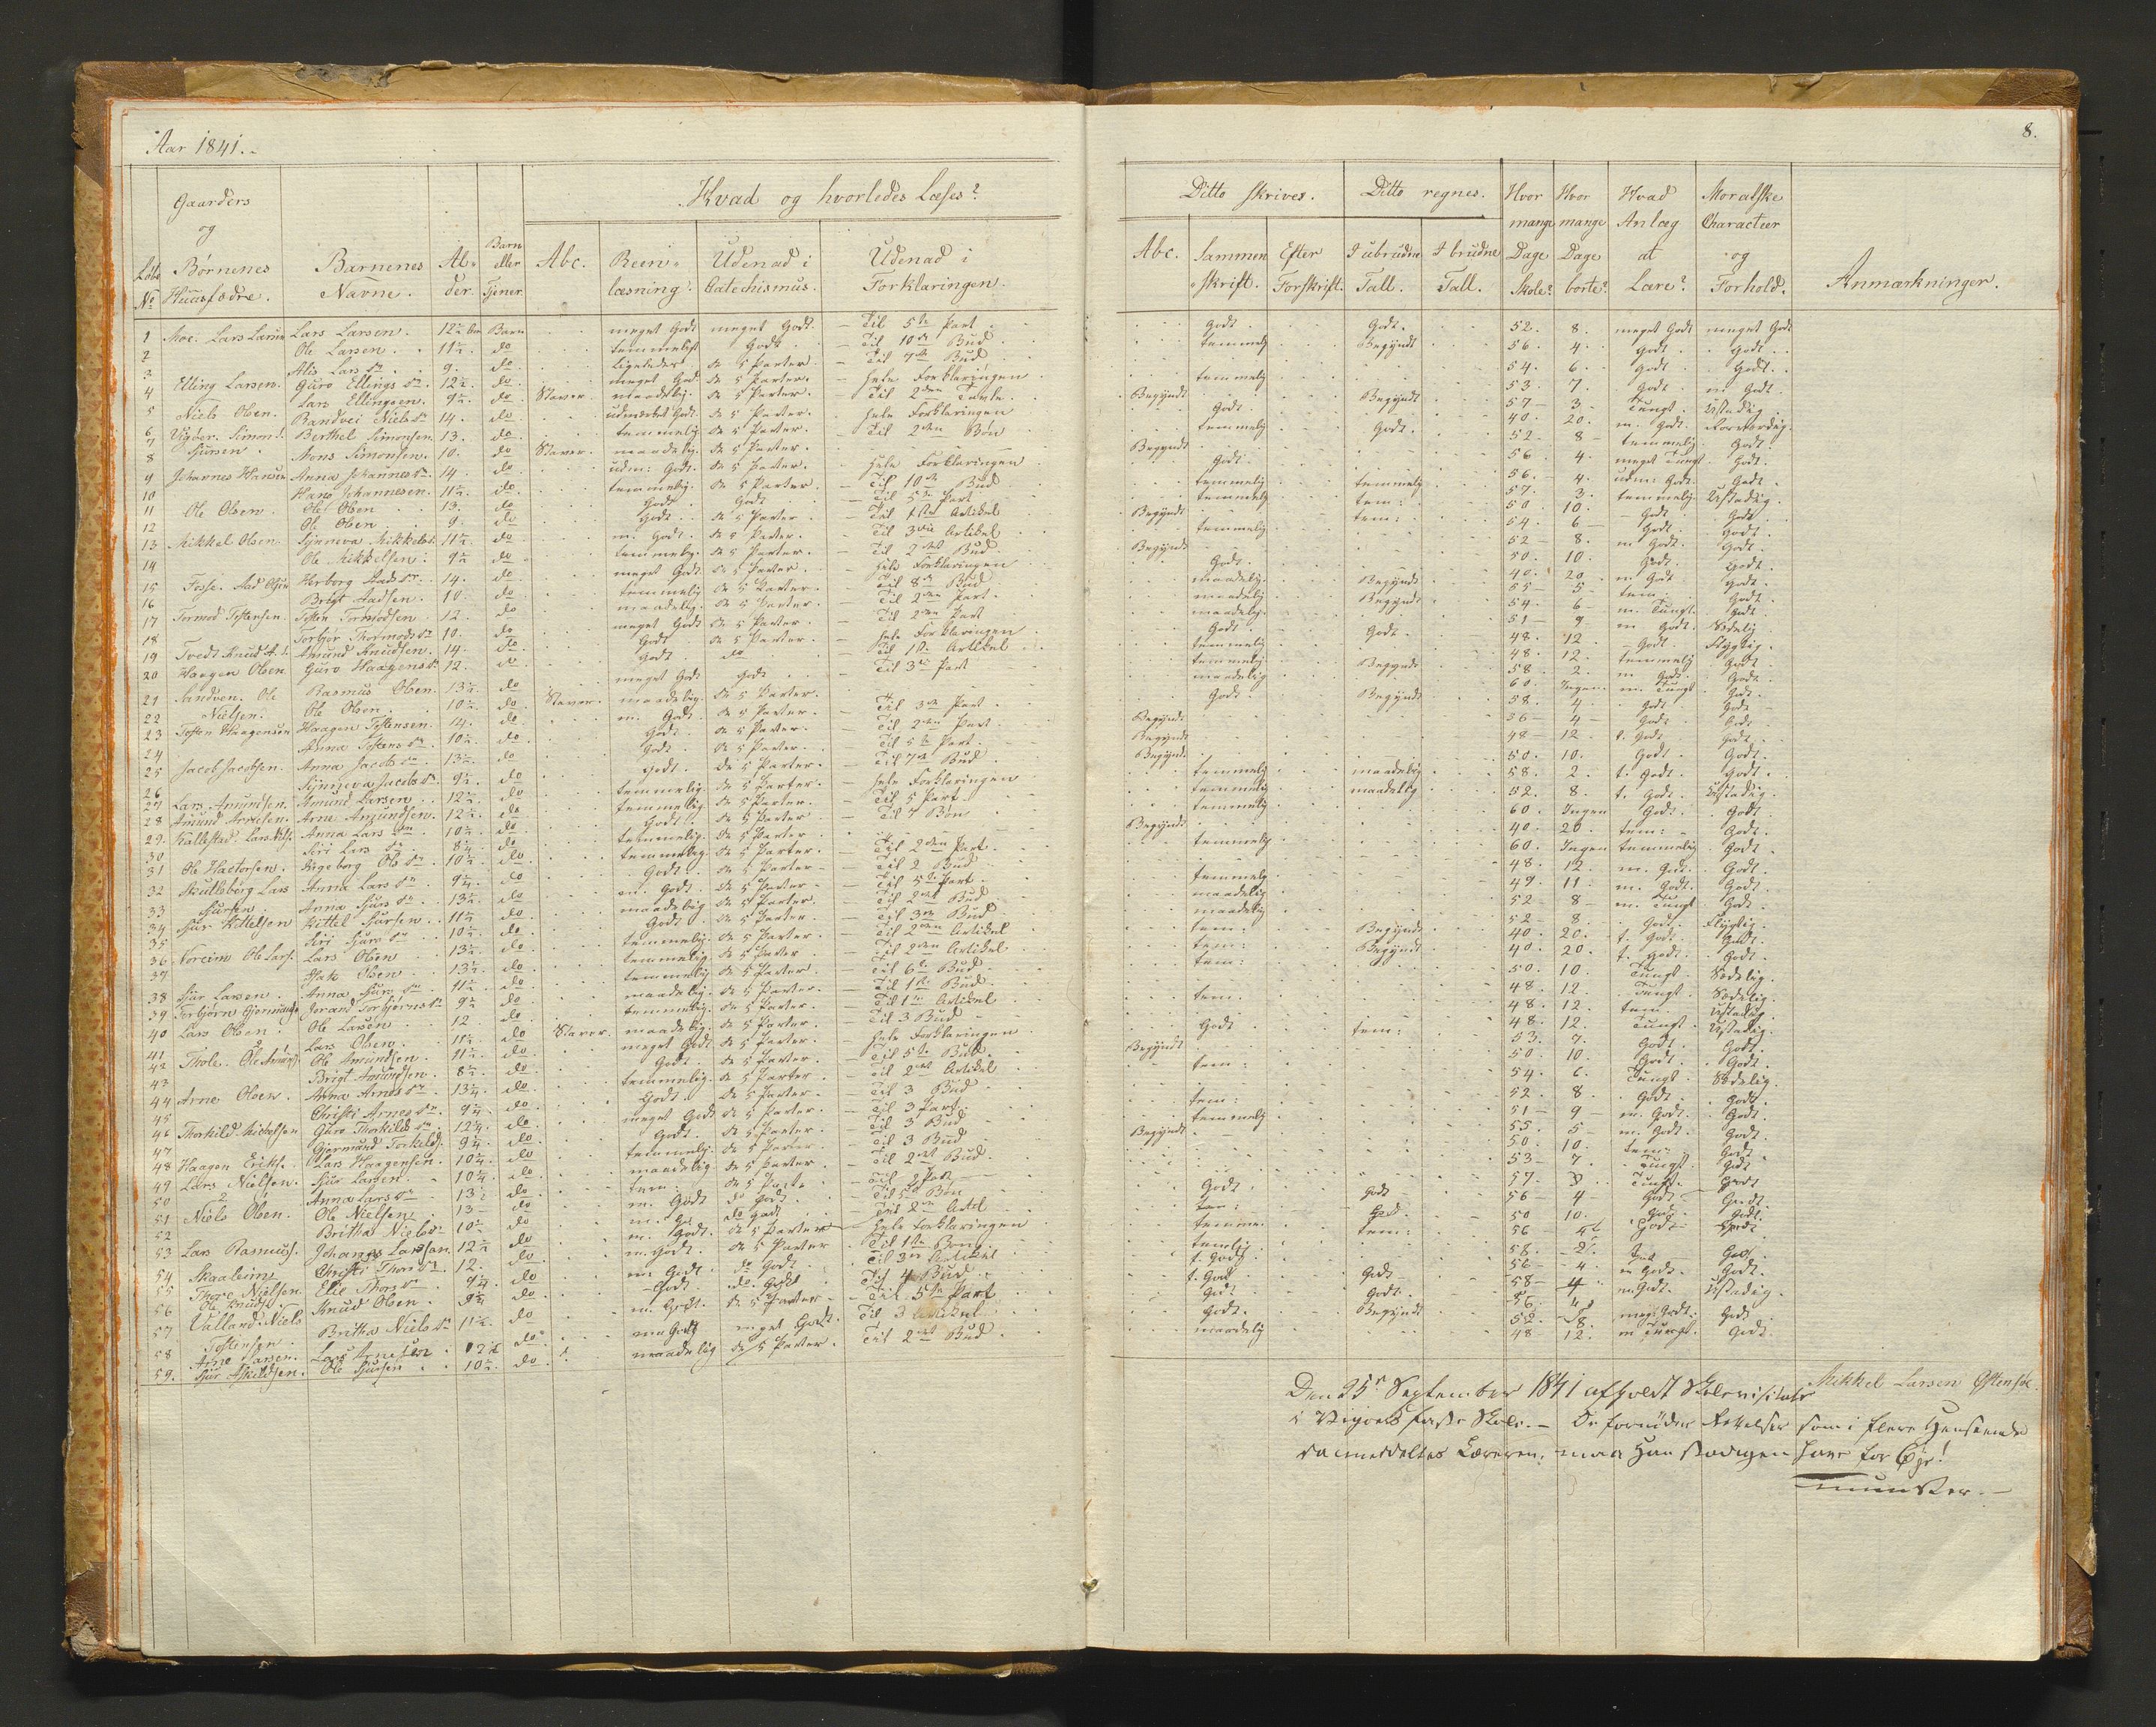 Aar 1841.
8.
Gaarders og Børnenes Huusfædre.
Løbe No
Barnenes Navne.
Alder.
Barn eller Tjener
Hvad og hvorledes Læses?
Abc. Reenlæsning. Udenad i Catechismus. Udenad i Forklaringen.
Ditto skrives. Ditto regnes.
Abc. Sammenskrift. Efter Forskrift. I ubrudne Tall. I brudne Tall.
Hvor mange Dage Skole? Hvor mange Dage borte? Hvad Anlæg at Lære? Moralske Characteer og Forhold. Anmærkninger.
1 Moe. Lars Larsen Lars Larsen. 12½ Barn meget Godt meget Godt. Til 5te Part Godt. Godt. 52. 8. meget Godt meget Godt
2 Ole Larsen. 11½. do temmeligt Godt Til 10de Bud temmelig Begyndt 56. 4. Godt. Godt.
3 Alis Lars Dr. 9. do Ligeledes de 5 Parter. Til 7de Bud 54. 6. Godt. Godt.
4 Elling Larsen. Guro Ellings Dr. 12½. do meget God. de 5 Parter. hele Forklaringen temmelig 53. 7. Godt. m Godt.
5 Lars Ellingsen. 9½. do Staver. maadelig. de 5 Parter. Til 2den Tavle. Begyndt Begyndt 57 3 Tungt. Ustadig.
6 Niels Olsen. Randvei Niels Dr 14. do udmærket Godt. de 5 Parter. hele Forklaringen Godt. 40. 20. m. Godt.
7 Vigøer. Simon Berthel Simonsen. 13. do temmelig de 5 Parter. Til 2den Bøn temmelig Godt. 52. 8 temmelig. Godt.
8 Sjursen. Mons Simonsen. 10. do Staver. maadelig. de 5 Parter. Begyndt 56. 4. meget Tungt. Godt.
9 Johannes Hansen Anna Johannes Dr. 14. do udm: Godt. de 5 Parter. hele Forklaringen Godt. 56. 4. udm: Godt. Godt.
10 Hans Johannesen. 11½. do temmelig. de 5 Parter. Til 10de Bud temmelig temmelig 57. 3. temmelig. Ustadig.
11 Ole Olsen. Ole Olsen 13. do Godt. Godt Til 5te Part temmelig tem: 50. 10. Godt. Godt.
12 Ole Olsen 9. do Godt. de 5 Parter. Til 1ste Artikel Begyndt tem: 54. 6 Godt. Godt.
13 Mikkel Olsen. Synneva Mikkels Dr. 11½. do m. Godt. de 5 Parter. Til 3die Artikel temmelig 52 8. m Godt. Godt.
14 Ole Mikkelsen. 9½ do temmelig. de 5 Parter. Til 2det Bud Begyndt 50. 10. Godt. Godt.
15 Fosse. Aad Olsen Herborg Aads Dr. 14. do meget Godt. de 5 Parter. hele Forklaringen Godt. 40. 20. m Godt Godt.
16 Brigt Aadsen. 10. do temmelig de 5 Parter. Til 8de Bud maadelig. Begyndt 55 5 tem: Godt.
17 Tormod Tostensen. Tosten Tormodsen. 12. do maadelig. de 5 Parter. Til 2den Part. maadelig Begyndt 54. 6 m. Tungt. Godt.
18 Torbjør Thormods Dr 10. do meget Godt de 5 Parter. Til 2den Part maadelig. 51 9 m Godt. Sædelig.
19 Tvedt Knud A. S. Amund Knudsen. 14. do Godt de 5 Parter. hele Forklaringen Godt. Godt. 48. 12. Godt. Flygtig.
20 Haagen Olsen Guro Haagens Dr 12. do Godt do Til 1st Artikel temmelig 48. 12. temmelig Godt.
21 Sandven. Ole Rasmus Olsen. 13½. do meget Godt Godt Til 3de Part temmelig Begyndt 58. 2. m Godt. Godt.
22 Nielsen. Ole Olsen. 10½. do Staver. maadelig. de 5 Parter. maadelig 60. Ingen. m. Tungt. Godt.
23 Tosten Haagensen Haagen Tostensen. 14. do m. Godt. de 5 Parter. Til 3de Part Godt. Begyndt 58. 4. Godt. Godt
24 Anna Tostens Dr. 10½. do Godt. de 5 Parter. Til 2den Part. Begyndt 56 4 Godt. Godt.
25 Jacob Jacobsen. Anna Jacobs Dr 13½. do Godt. de 5 Parter. Til 5te Part. Begyndt 48 12 Godt Godt.
26 Synneva Jacobs Dr. 9½. do Godt. de 5 Parter. Til 7de Bud Begyndt 50. 10. Godt. Godt.
27 Lars Amundsen. Amund Larsen. 12½. do temmelig. de 5 Parter. hele Forklaringen temmelig maadelig 58. 2. t. Godt. Godt.
28 Amund Arnesen. Arne Amundsen. 12½. do temmelig de 5 Parter. Til 5 Part temmelig maadelig 52. 8. t. Godt. Ustadig.
29. Kallestad. Lars Nils. Anna Lars Dr 10½. do Godt. de 5 Parter. Til 7 Bøn temmelig 60. Ingen Godt. Godt.
30 Siri Lars Dr. 8¼. do temmelig. de 5 Parter. Begyndt 40. 20. tem: Godt.
31 Ole Hactorsen. Ingeborg Ols Dr. 10½. do temmelig. de 5 Parter. Til 2den Part. temmelig 60. Ingen temmelig. Godt.
32 Skutlberg Lars Anna Lars Dr 9¼. do Godt. de 5 Parter. Til 2 Bud 48. 12. m. Godt. Godt.
33 Sjursen. Anna Sjurs Dr. 13½. do m. Godt. de 5 Parter. Til 5te Part. temmelig 49. 11. m. Godt. Godt.
34 Sjur Kittelsen Kittel Sjursen. 11½ do maadelig de 5 Parter. Til 2det Bud. maadelig 52 8 m. Tungt Godt.
35 Siri Sjurs Dr 10½. do Godt. de 5 Parter. Til 3die Bud maadelig 52 8. Godt. Flygtig.
36 Noreim Ole Lars. Lars Olsen 13½. do temmelig. de 5 Parter. Til 2den Artikel tem: Begyndt 40. 20. t. Godt. Godt.
37 Hak Olsen 13½. do temmelig de 5 Parter. Til 2den Artikel tem: Begyndt 40. 20. t. Godt. Godt.
38 Sjur Larsen. Anna Sjurs Dr. 11½. do temmelig de 5 Parter. Til 6te Bud tem: 50. 10. Tungt Sædelig.
39 Torbjørn Gjermunds Jorand Torbjørns Dr 9½ do maadelig. de 5 Parter. Til 1ste Bud. 48. 12. Tungt. Sædelig.
40 Lars Olsen. Ole Larsen 12. do temmelig. de 5 Parter. Til 1ste Artikel tem. 48. 12 tem. Ustadig.
41 Lars Olsen. 11½. do Staver. maadelig. de 5 Parter. Til 3 Bud 48. 12. Tungt. Ustadig.
42 Thole. Ole Amunds Ole Amundsen. 11½. do meget Godt de 5 Parter. hele Forklaringen Godt tem: 53. 7. Godt. Godt.
43 Brigt Amundsen. 8½. do Godt. de 5 Parter. Til 5te Bud. Begyndt 50. 10. Godt. Godt.
44 Arne Olsen. Anna Arnes Dr. 13¼. do temmelig. de 5 Parter. Til 2det Artikel tem: 54. 6. Tungt. Sædelig.
45 Christi Arnes Dr. 9¼. do Godt. de 5 Parter. Til 3 Bud 52. 8. Godt. Godt.
46 Thorkild Michelsen Guro Thorkilds Dr. 12¼. do meget Godt de 5 Parter. Til 3 Part. tem: 51 9 m. Godt. Godt.
47 Gjermund Torkilds. 9¼. do Godt. de 5 Parter. Til 3 Bud temmelig 55. 5 m. Godt. Godt.
48 Haagen Eriks. Lars Haagensen. 10¼. do temmelig. de 5 Parter. Til 3 Bud Begyndt 50. 10. tem: Godt.
49 Lars Nielsen. Sjur Larsen. 10¼. do maadelig. de 5 Parter. Til 2det Bud. 53 7. Tungt. Godt
50 Anna Lars Dr 13½ do tem: de 5 Parter 57. 3 Tungt. Godt
51 Niels Olsen. Ole Nielsen 13 do m. Godt do Godt. Godt. Godt 56 4 Godt. Godt.
52 Britha Niels Dr 10½ do do Godt 50 10. Godt.
53 Lars Rasmus. Johannes Larsen. 12½ do m. Godt. de 5 Parter hele Forklaringen tem: 56 Godt Godt.
54 Skaaleim Christi Thors Dr 12. do m. Godt. de 5 Parter Til 1ste Bøn 58. 2. Godt.
55 Thore Nielsen. Elie Thors Dr 9¼. do m Godt do Godt. Til 3die Artikel t. Godt 56 4. m Godt. Godt.
56 Ole Knuds. Knud Olsen. 9¼ do Godt do Godt Til 4 Bud t. Godt Godt. 58 4 m Godt. Ustadig.
57 Valland. Niels Britha Niels Dr 11½. do m. Godt. de 5 Parter Til 5te Part Godt Godt. 56.
58 Tostensen. Arne Larsen. Lars Arnesen 12½ do m Godt meget Godt. Til 3 Artikel Godt. Begyndt 52. 8. meg. Godt. Godt
59. Sjur Askildsen. Ole Sjursen 10½. do maadelig de 5 Parter. Til 2det Bud. maadelig 48 12. m Tungt. Godt
Mikkel Larsen Østensøe.
Den 25n September 1841 afholdt Skolevisitats
i Vigøers faste Skole. – De fornødne Rettelser som i flere Henseende
da meddeltes Læreren, maa Han stadigen have for Øje!
Munster.